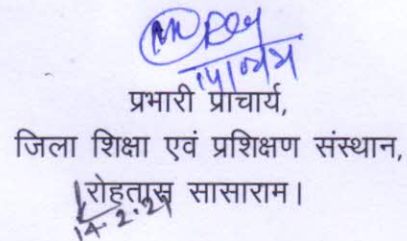 प्रभारी प्राचार्य,
जिला शिक्षा एवं प्रशिक्षण संस्थान,
रोहतास सासाराम।